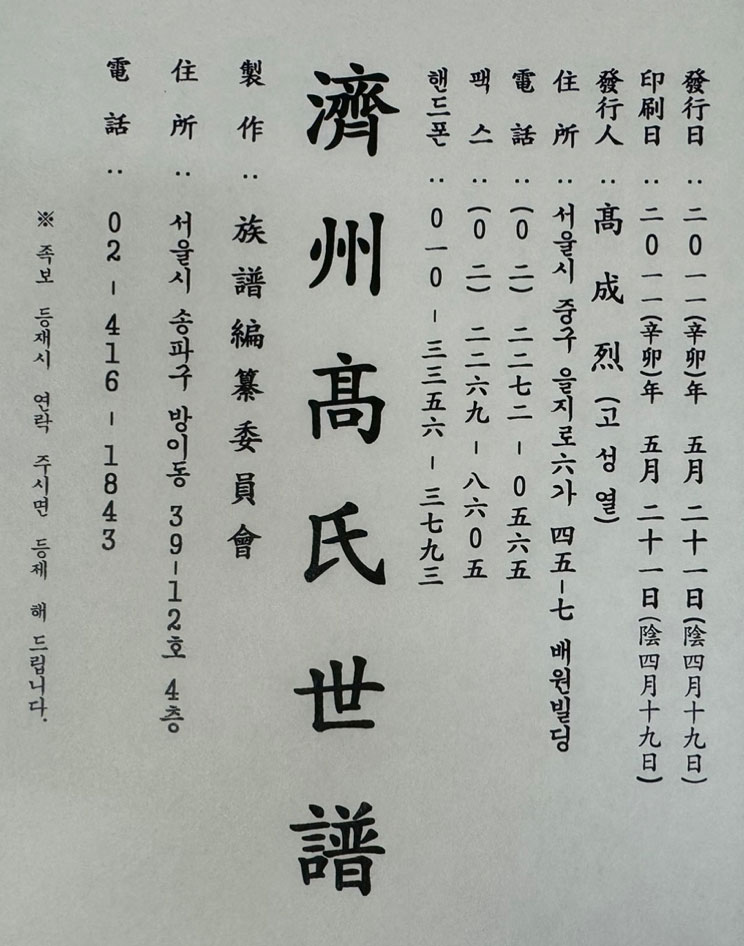 發行日 : 二0一一(辛卯)年 五月 二十一日(陰四月十九日)
印刷日 : 二0一一(辛卯)年 五月 二十一日(陰四月十九日)
發行人 : 髙成烈 (고성열)
住所 : 서울시 중구 을지로六가 四五-七 배원빌딩
電話 : (0二) 二二七二-0五六五
팩스 : (0二) 二二六九-八六0五
핸드폰 : 0一0-三三五六-三七九三
濟州髙氏世譜
製作 : 族譜編纂委員會
住所 : 서울시 송파구 방이동 39-12호 4층
電話 : 02-416-1843
※ 족보 등재시 연락 주시면 등제 해 드립니다.